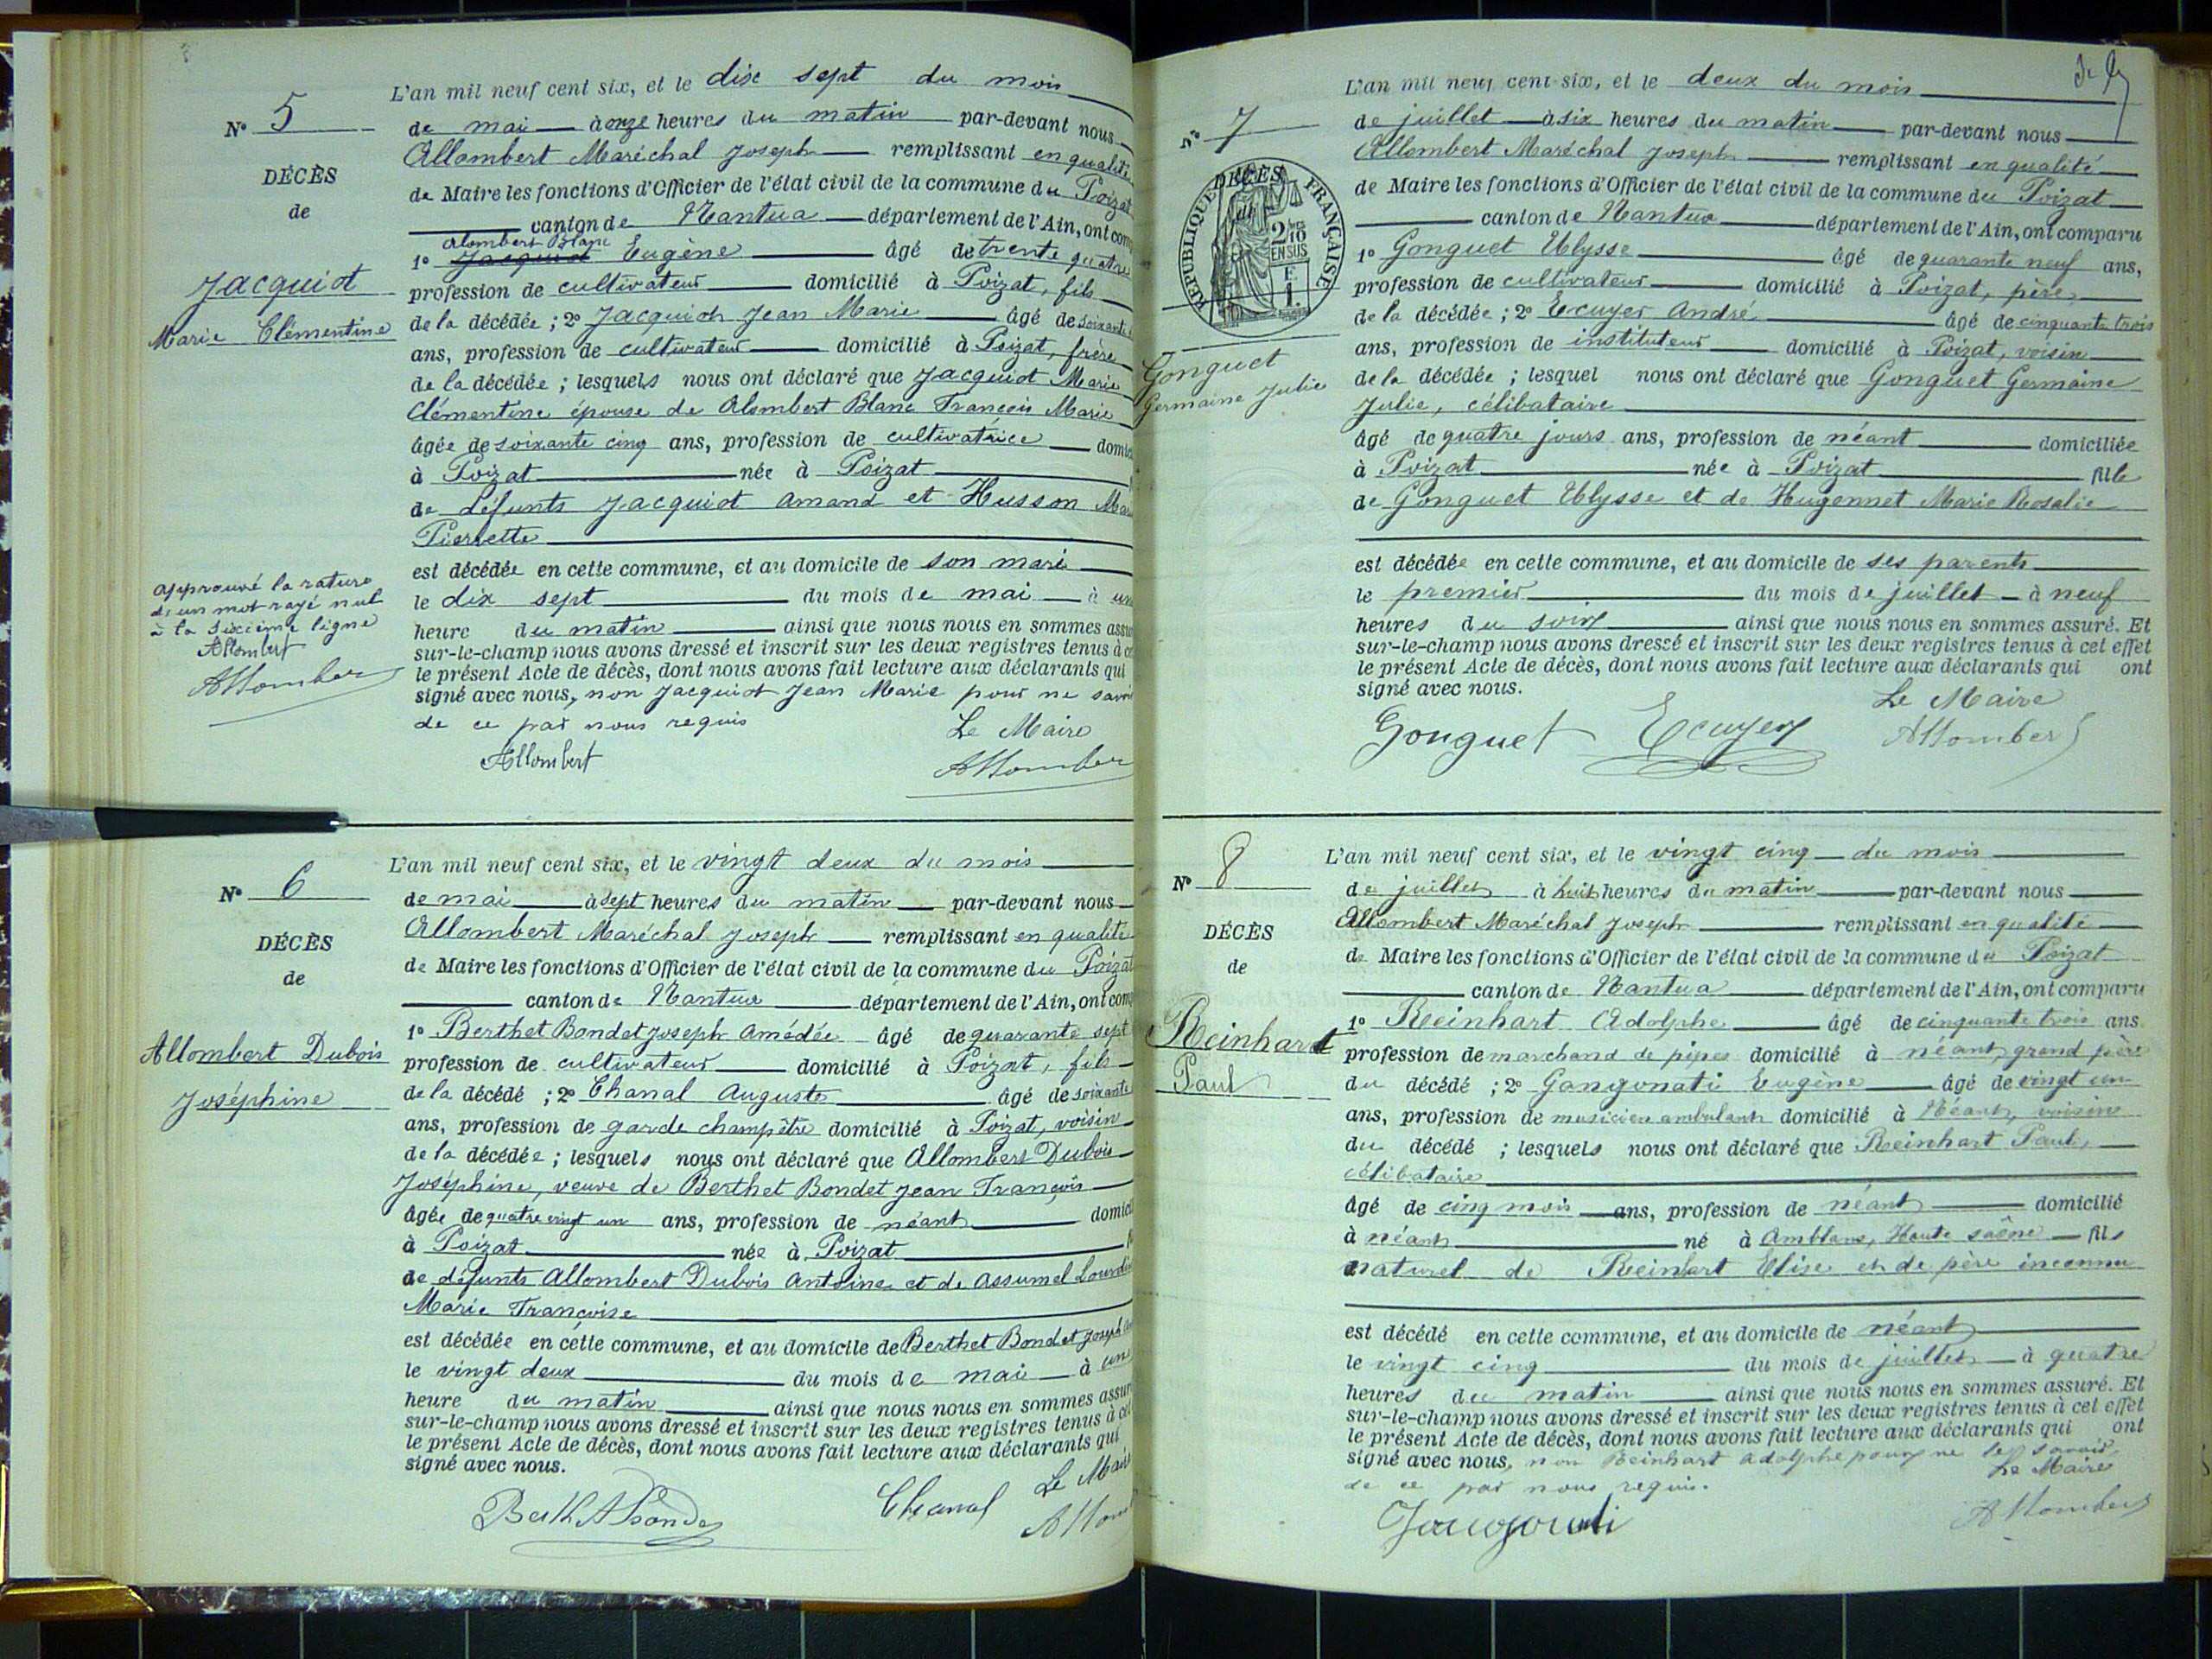 L'an mil neuf cent six, et le dix sept du mois
N° 5
de mai à onze heures du matin par-devant nous
Allombert Maréchal Joseph remplissant en qualité
DÉCÈS
de Maire les fonctions d'Officier de l'état civil de la commune du Poizat
de
canton de Nantua département de l'Ain, ont com
Alombert Blanc
1° Jacquiot Eugène âgé de trente quatre
Jacquiot
profession de cultivateur domicilié à Poizat, fils
Marie Clémentine
de la décédée ; 2° Jacquiot Jean Marie âgé de soixante
ans, profession de cultivateur domicilié à Poizat, frère
de la décédée ; lesquels nous ont déclaré que Jacquiot Marie
Clémentine épouse de Alombert Blanc François Marie
âgée de soixante cinq ans, profession de cultivatrice domici
à Poizat née à Poizat
de défunts Jacquiot Amand et Husson Ma
Pierrette
est décédée en cette commune, et au domicile de son mari
le dix sept du mois de mai à une
heure du matin ainsi que nous nous en sommes assu
sur-le-champ nous avons dressé et inscrit sur les deux registres tenus à ce
le présent Acte de décès, dont nous avons fait lecture aux déclarants qui
signé avec nous, non Jacquiot Jean Marie pour ne savoir
de ce par nous requis
approuvé la rature
de un mot rayé nul
à la sixième ligne
Allombert
Allombert
Le Maire
Allombert
Allombert
L'an mil neuf cent six, et le vingt deux du mois
N° 6
de mai à sept heures du matin par-devant nous
Allombert Maréchal Joseph remplissant en qualité
DÉCÈS
de Maire les fonctions d'Officier de l'état civil de la commune du Poizat
de
canton de Nantua département de l'Ain, ont com
1° Berthet Bondet Joseph Amédée âgé de quarante sept
Allombert Dubois
profession de cultivateur domicilié à Poizat, fils
Joséphine
de la décédé ; 2° Chanal Auguste âgé de soixante
ans, profession de garde champêtre domicilié à Poizat, voisin
de la décédée ; lesquels nous ont déclaré que Allombert Dubois
Joséphine, veuve de Berthet Bondet Jean François
âgée de quatre vingt un ans, profession de néant domici
à Poizat née à Poizat
de défunts Allombert Dubois Antoine et de Assumel Lourdin
Marie Françoise
est décédée en cette commune, et au domicile de Berthet Bondet Joseph
le vingt deux du mois de mai à une
heure du matin ainsi que nous nous en sommes assur
sur-le-champ nous avons dressé et inscrit sur les deux registres tenus à cet
le présent Acte de décès, dont nous avons fait lecture aux déclarants qui
signé avec nous.
Le Maire
Chanal
L'an mil neuf cent six, et le deux du mois
N° 7
de juillet à six heures du matin par-devant nous
Allombert Maréchal Joseph remplissant en qualité
DÉCÈS
de
RÉPUBLIQUE FRANÇAISE
2/10
EN SUS
F.
1.
de Maire les fonctions d'Officier de l'état civil de la commune du Poizat
canton de Nantua département de l'Ain, ont comparu
1° Gonguet Ulysse âgé de quarante neuf ans,
profession de cultivateur domicilié à Poizat, père
de la décédée ; 2° Ecuyer André âgé de cinquante trois
ans, profession de instituteur domicilié à Poizat, voisin
Gonguet
Germaine Julie
de la décédée ; lesquel nous ont déclaré que Gonguet Germaine
Julie, célibataire
âgé de quatre jours ans, profession de néant domiciliée
à Poizat née à Poizat fille
de Gonguet Ulysse et de Hugonnet Marie Rosalie
est décédée en cette commune, et au domicile de ses parents
le premier du mois de juillet à neuf
heures du soir ainsi que nous nous en sommes assuré. Et
sur-le-champ nous avons dressé et inscrit sur les deux registres tenus à cet effet
le présent Acte de décès, dont nous avons fait lecture aux déclarants qui ont
signé avec nous.
Le Maire
Gonguet Ecuyer Allombert
L'an mil neuf cent six, et le vingt cinq du mois
N° 8
de juillet à huit heures du matin par-devant nous
Allombert Maréchal Joseph remplissant en qualité
DÉCÈS
de Maire les fonctions d'Officier de l'état civil de la commune du Poizat
de
canton de Nantua département de l'Ain, ont comparu
1° Reinhart Adolphe âgé de cinquante trois ans
Reinhart
profession de marchand de pipes domicilié à néant, grand père
Paul
du décédé ; 2° Gangonati Eugène âgé de vingt un
ans, profession de musicien ambulant domicilié à Néant, voisin
du décédé ; lesquels nous ont déclaré que Reinhart Paul,
célibataire
âgé de cinq mois ans, profession de néant domicilié
à néant né à Amblans, Haute Saône fils
naturel de Reinhart Elise et de père inconnu
est décédé en cette commune, et au domicile de néant
le vingt cinq du mois de juillet à quatre
heures du matin ainsi que nous nous en sommes assuré. Et
sur-le-champ nous avons dressé et inscrit sur les deux registres tenus à cet effet
le présent Acte de décès, dont nous avons fait lecture aux déclarants qui ont
signé avec nous, non Reinhart Adolphe pour ne le savoir
de ce par nous requis.
Le Maire
Allombert